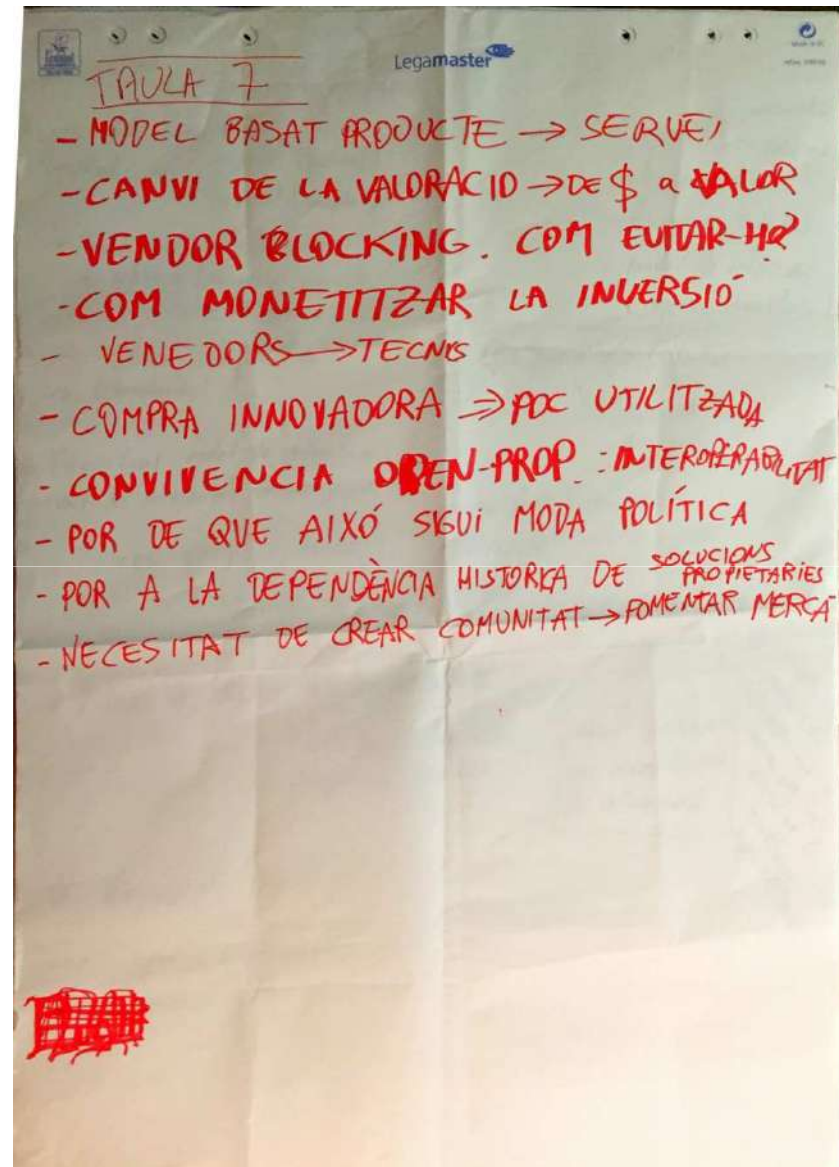 Legamaster
TAULA 7
- MODEL BASAT PRODUCTE → SERVEI
- CANVI DE LA VALORACIO → DE $ a VALOR
- VENDOR BLOCKING. COM EVITAR-HO?
- COM MONETITZAR LA INVERSIÓ
- VENEDORS → TECNIS
- COMPRA INNOVADORA ⇒ POC UTILITZADA
- CONVIVENCIA OPEN-PROP. : INTEROPERABILITAT
- POR DE QUE AIXÓ SIGUI MODA POLÍTICA
- POR A LA DEPENDÈNCIA HISTORICA DE SOLUCIONS PROPIETARIES
- NECESITAT DE CREAR COMUNITAT → FOMENTAR MERCÁ